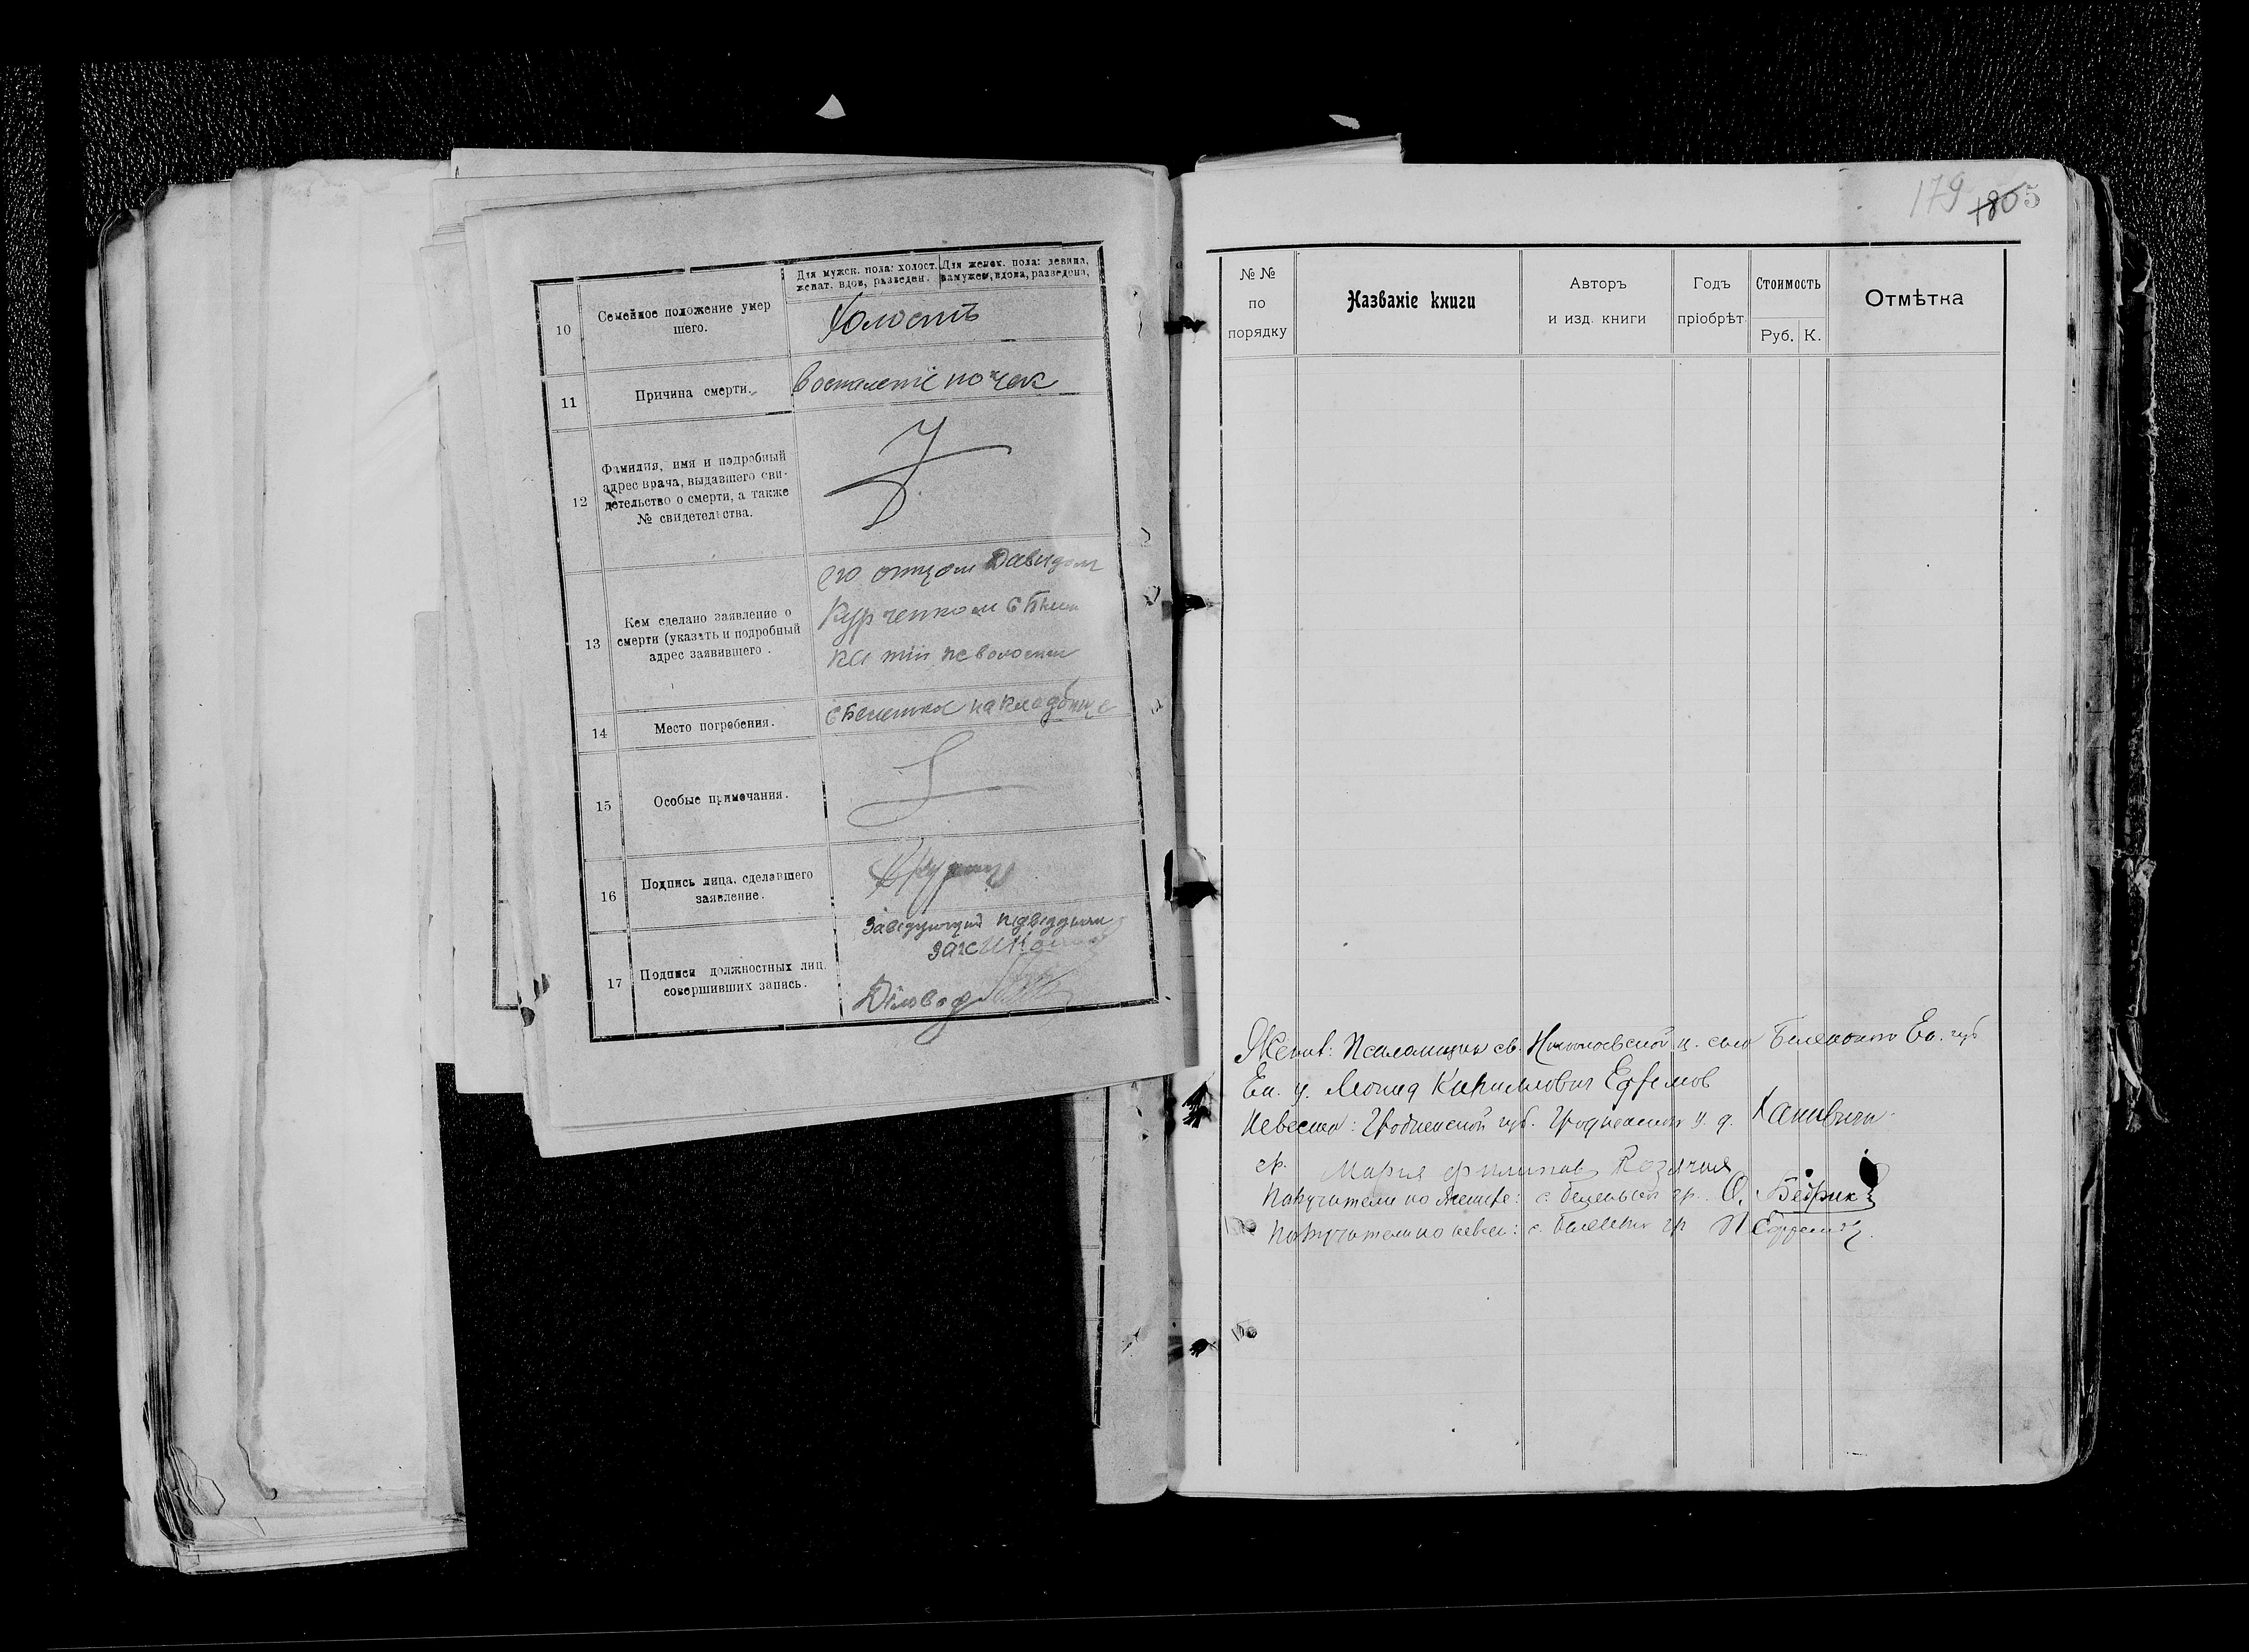 Для мужск. пола: холост.
женат. вдов, разведен.
Для женск. пола: девица,
замужем, вдова, разведена,
10
Семейное положение умер
шего.
Холостъ
11
Причина смерти.
Воспаленіе почек
12
Фамилия, имя и подробный
адрес врача, выдавшего сви-
детельство о смерти, а также
№ свидетельства.
13
Кем сделано заявление о
смерти (указать и подробный
адрес заявившего.
его отцом Давидом
Курченком с
волости
14
Место погребения.
с Беленькое на кладбище
15
Особые примечания.
16
Подпись лица, сделавшего
заявление.
17
Подписи должностных лиц,
совершивших запись.
Завідуючий підвідділом
ЗАГС
Діловод
179 180 5
№ №
по
порядку
Названіе книги
Авторъ
и изд. книги
Годъ
пріобрѣт.
Стоимость
Руб. К.
Отмѣтка
Жених: Псаломщик св. Николаевской ц. села Беленького Ек. губ
Ек. у. Леонид Кириллович Ефремов
Невеста: Гродненской губ. Гродненского у. д.
гр. Мария Филипов Козячая
Поручители по женихе: с. Беленького гр. О. Бедрик
Поручители по невес: с. Беленького гр П Ефремов